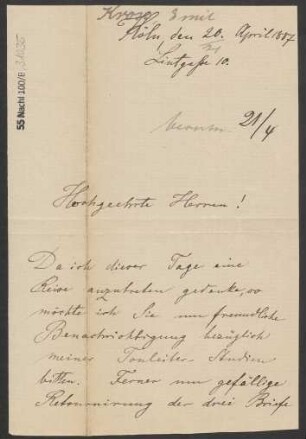 Kross Emil
Köln, den 20. April 1887
Lintgasse 10.
21/4
Hochgeehrte Herren!
Da ich dieser Tage eine
Reise anzutreten gedenke, so
möchte ich Sie um freundliche
Benachrichtigung bezüglich
meiner Tonleiter-Studien
bitten. Ferner um gefällige
Retournirung der drei Briefe
55 Nachl 100/B